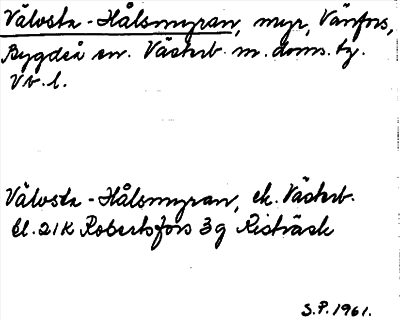 Välvsta-Hålsmyran, myr, Vänfors,
Bygdeå sn. Västerb. m. doms. tg.
Vb. l.
Välvsta-Hålsmyran, ek. Västerb.
bl. 21K Robertsfors 3g Risträsk
S.P. 1961.